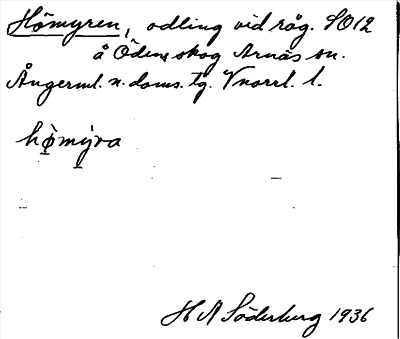 Hömyren, odling vid råg. SO12
å Ödens skog Arnäs sn.
Ångerml. n. doms. tg. Vnorrl. l.
hö̀mýra
H A Söderberg 1936